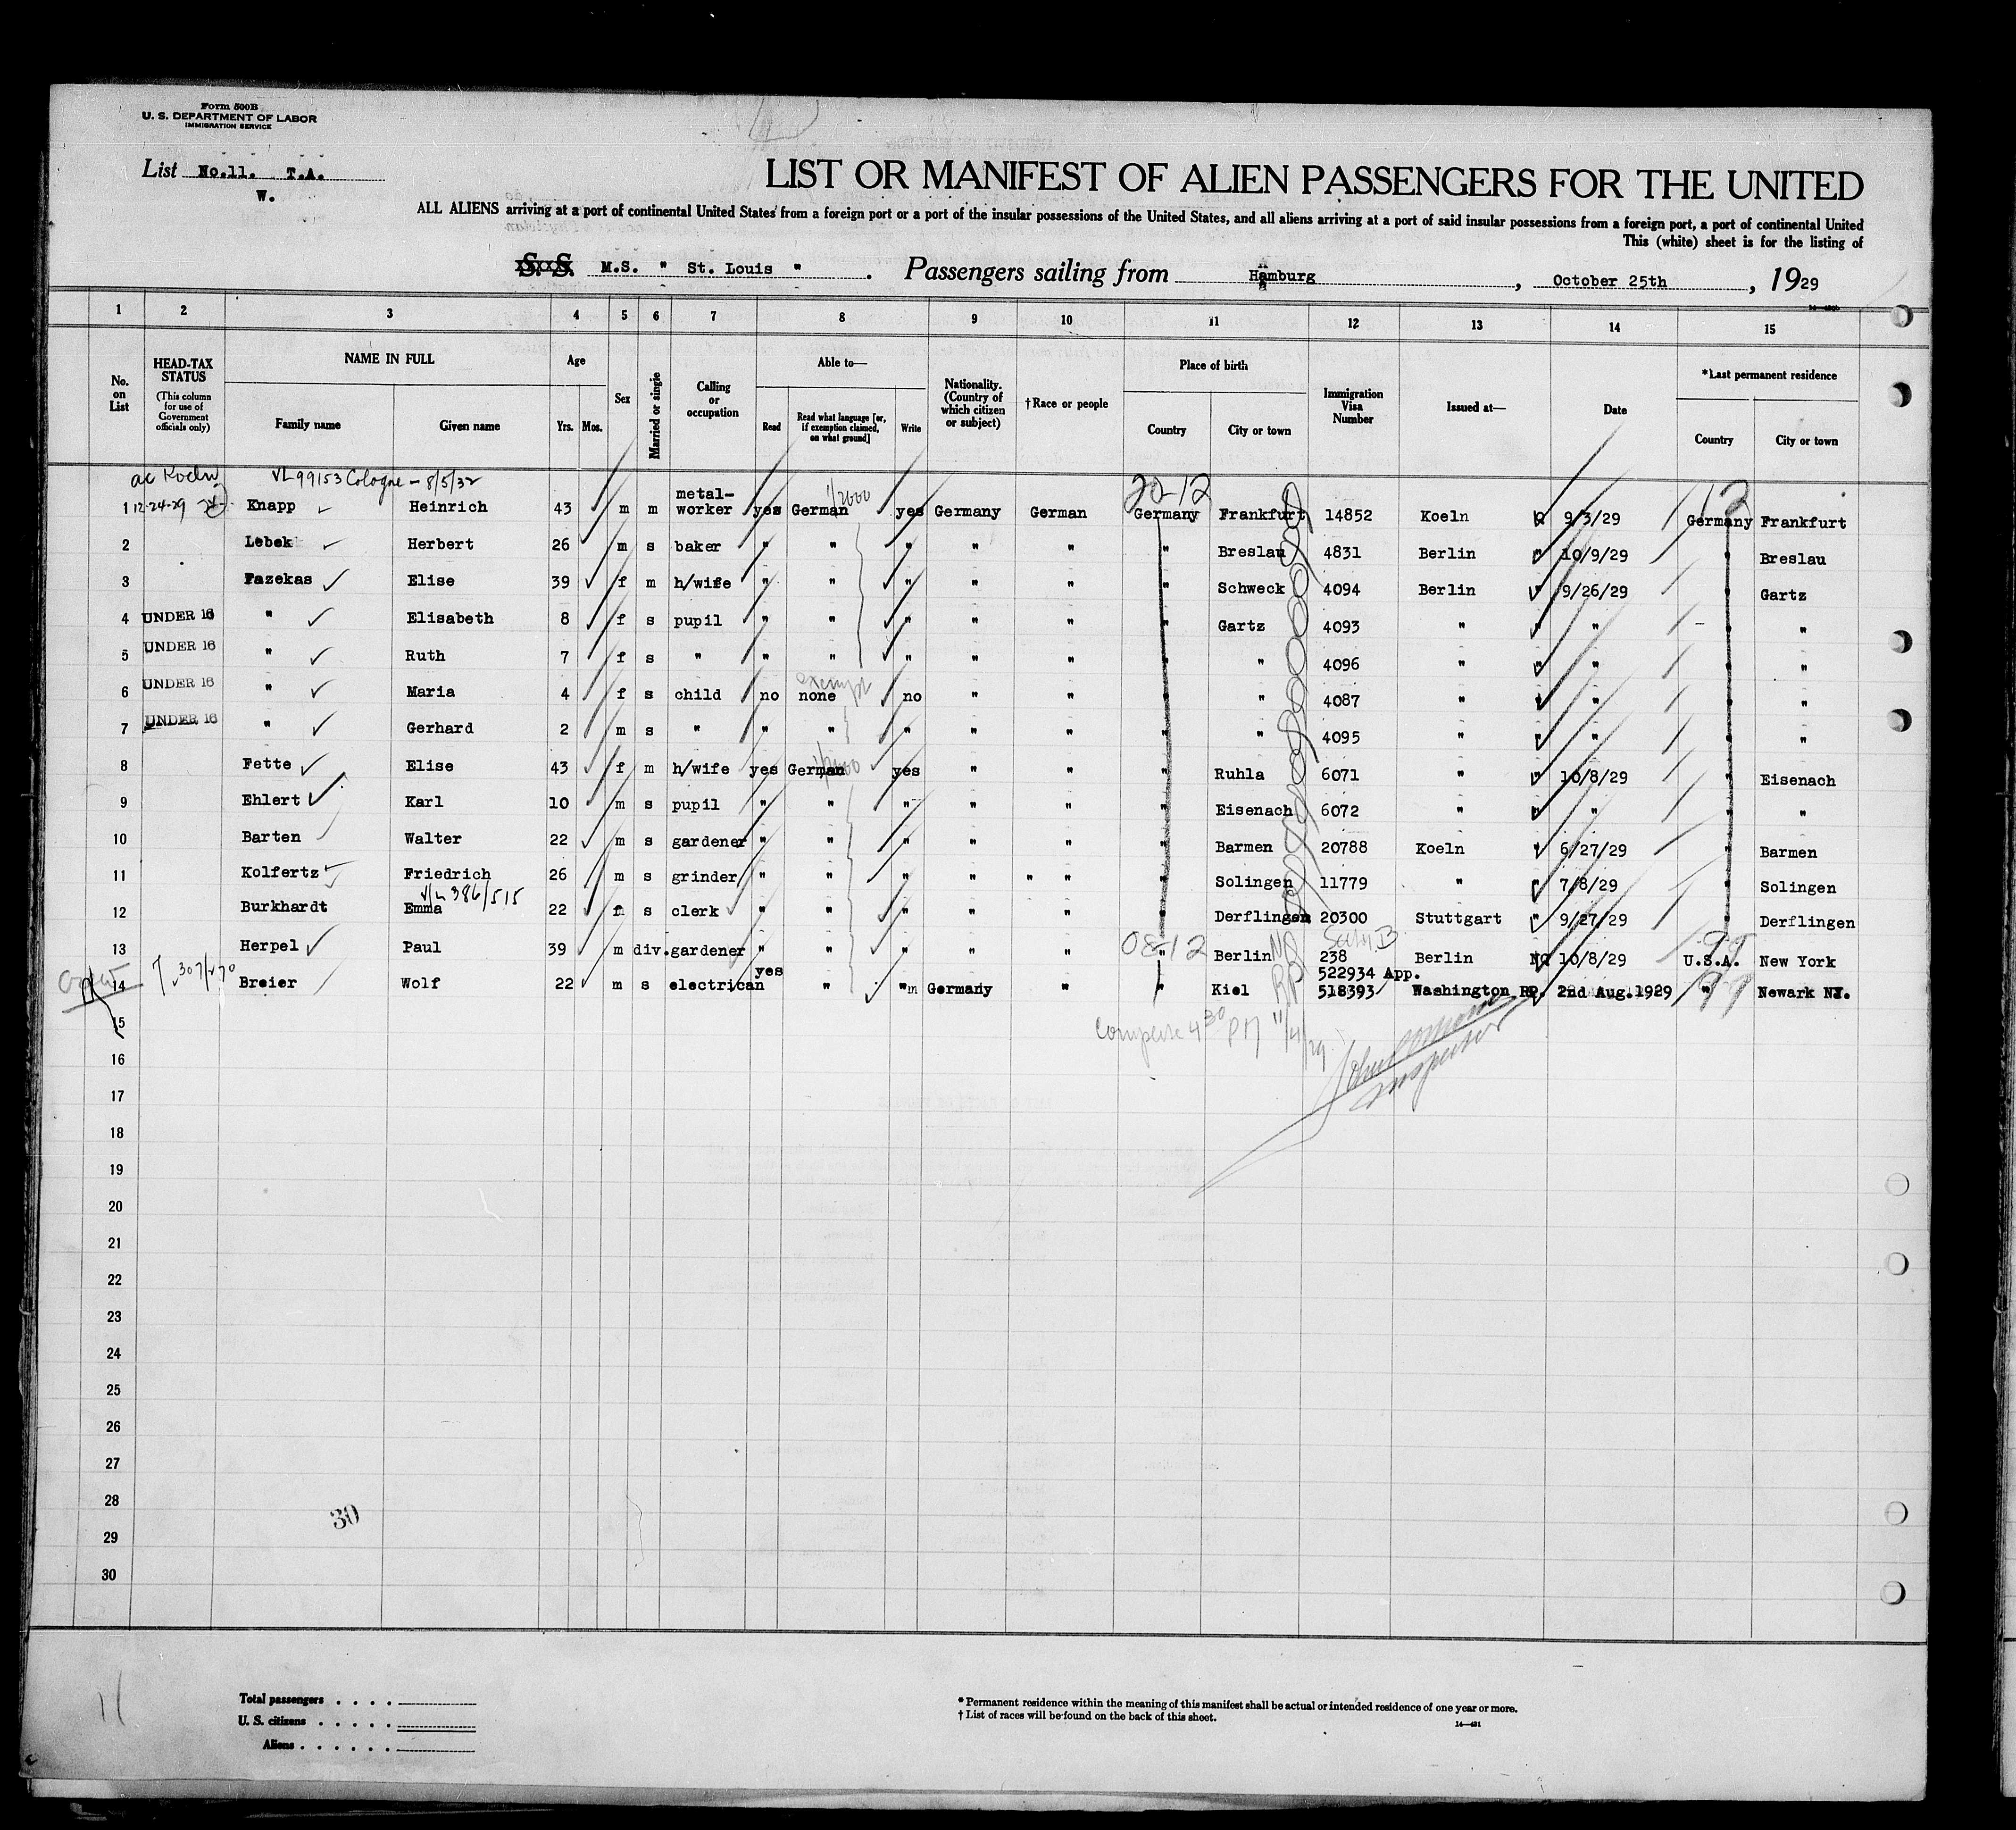 Form 500B
U. S. DEPARTMENT OF LABOR
IMMIGRATION SERVICE
List No.11. T.A.
W.
LIST OR MANIFEST OF ALIEN PASSENGERS FOR THE UNITED
ALL ALIENS arriving at a port of continental United States from a foreign port or a port of the insular possessions of the United States, and all aliens arriving at a port of said insular possessions from a foreign port, a port of continental United
This (white) sheet is for the listing of
S. S. M.S. " St. Louis " . Passengers sailing from Hamburg , October 25th , 1929
1 2 3 4 5 6 7 8 9 10 11 12 13 14 15
No. on List
HEAD-TAX STATUS (This column for use of Government officials only)
NAME IN FULL
Family name Given name
Age
Yrs. Mos.
Sex
Married or single
Calling or occupation
Able to—
Read
Read what language [or, if exemption claimed, on what ground]
Write
Nationality. (Country of which citizen or subject)
†Race or people
Place of birth
Country City or town
Immigration Visa Number
Issued at—
Date
*Last permanent residence
Country City or town
ac Koeln VL 99153 Cologne - 8/5/32
20-12
1 12-24-29 Knapp Heinrich 43 m m metal-worker yes German yes Germany German Germany Frankfurt 14852 Koeln 9/3/29 Germany Frankfurt
2 Lebek Herbert 26 m s baker " " " " " " Breslau 4831 Berlin 10/9/29 " Breslau
3 Fazekas Elise 39 f m h/wife " " " " " " Schweck 4094 Berlin 9/26/29 " Gartz
4 UNDER 16 " Elisabeth 8 f s pupil " " " " " " Gartz 4093 " " " "
5 UNDER 16 " Ruth 7 f s " " " " " " " " 4096 " " " "
exempt
6 UNDER 16 " Maria 4 f s child no none no " " " " 4087 " " " "
7 UNDER 16 " Gerhard 2 m s " " " " " " " " 4095 " " " "
8 Fette Elise 43 f m h/wife yes German yes " " " Ruhla 6071 " 10/8/29 " Eisenach
9 Ehlert Karl 10 m s pupil " " " " " " Eisenach 6072 " " " "
10 Barten Walter 22 m s gardener " " " " " " Barmen 20788 Koeln 6/27/29 " Barmen
11 Kolfertz Friedrich 26 m s grinder " " " " " " " Solingen 11779 " 7/8/29 " Solingen
V/L 386/515
12 Burkhardt Emma 22 f s clerk " " " " " " Derflingen 20300 Stuttgart 9/27/29 " Derflingen
08-12 99
13 Herpel Paul 39 m div. gardener " " " " " " Berlin 238 Berlin NQ 10/8/29 U.S.A. New York
522934 App.
14 Breier Wolf 22 m s electrican yes " " Germany " " Kiel RP 518393 Washington RP. 2nd Aug.1929 " Newark NJ.
15
16
17
18
19
20
21
22
23
24
25
26
27
28
29
30
30
Inspector
11
Total passengers
U. S. citizens
Aliens
* Permanent residence within the meaning of this manifest shall be actual or intended residence of one year or more.
† List of races will be found on the back of this sheet.
14—491